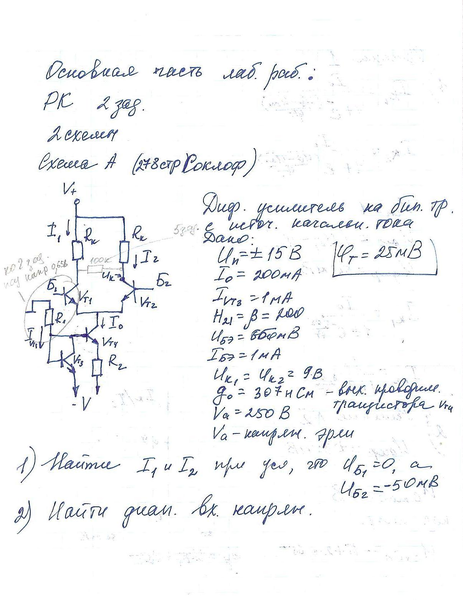 Основная часть лаб. раб.:
РК 2 зад.
2 схемы
Схема А (273 стр Соклоф)
V+
I1 Rк Rк
I2
100к
Uк2
Б1 VT1 VT2 Б2
R1 I0
VT4
VT3 R2
-V
Диф. усилитель на бип. тр.
с источ. начальн. тока
Дано:
Uп = ± 15 В φт = 25мВ
I0 = 200мА
IVT3 = 1мА
H21 = β = 200
Uбэ = 600мВ
Iбэ = 1мА
Uк1 = Uк2 = 9В
g0 = 307нСм - вых. проводим.
транзистора VT4
Va = 250 В
Va - напряж. эрли
1) Найти I1 и I2 при усл, что Uб1 = 0, а
Uб2 = -50мВ
2) Найти диап. вх. напряж.